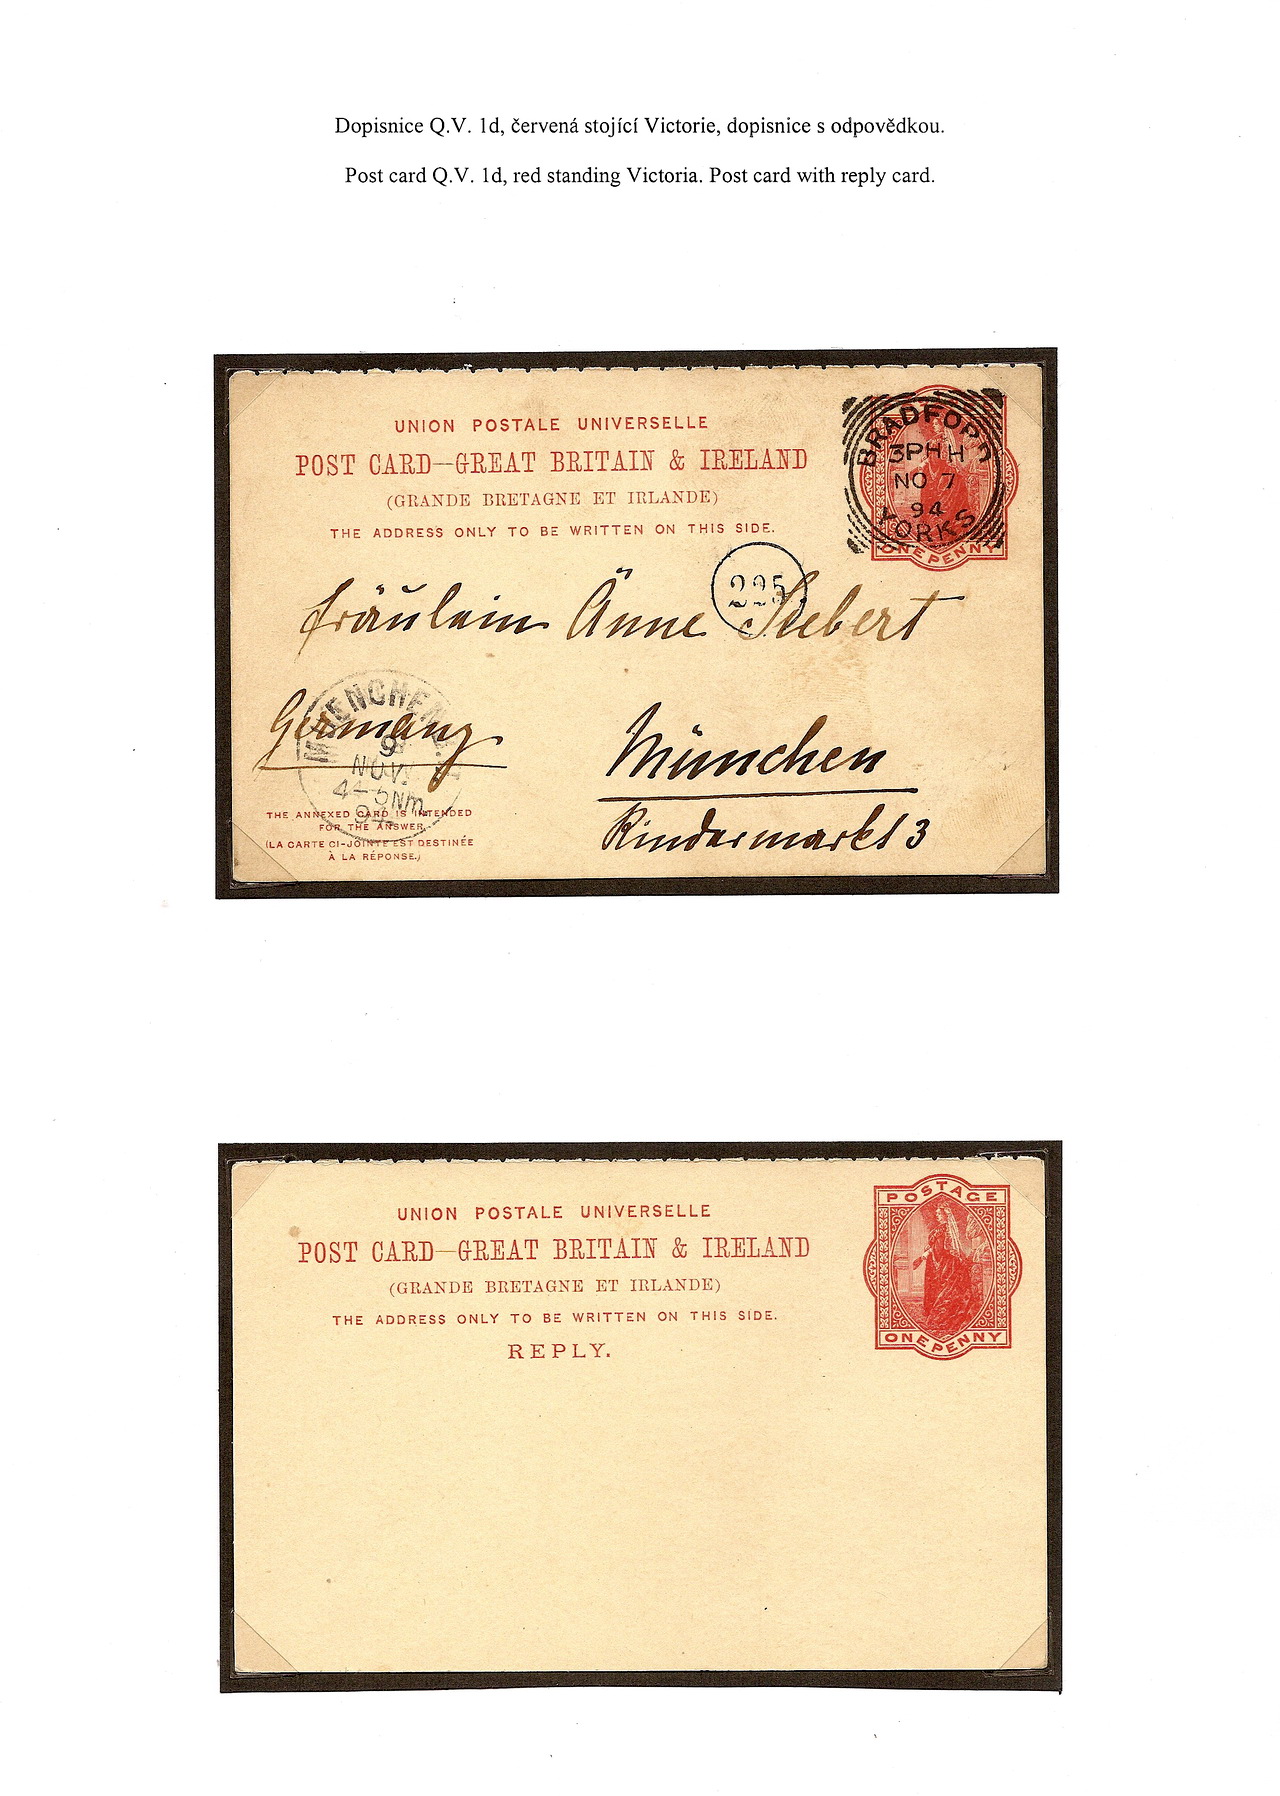 Dopisnice Q.V. 1d, červená stojící Victorie, dopisnice s odpovědkou.
Post card Q.V. 1d, red standing Victoria. Post card with reply card.
UNION POSTALE UNIVERSELLE
POST CARD—GREAT BRITAIN & IRELAND
(GRANDE BRETAGNE ET IRLANDE)
THE ADDRESS ONLY TO BE WRITTEN ON THIS SIDE.
BRADFORD
3PM H
NO 7
94
YORKS
ONE PENNY
225
Fräulein Anne Siebert
Germany
MUENCHEN
9
NOV.
4-5Nm.
94
München
Rindermarkt 3
THE ANNEXED CARD IS INTENDED
FOR THE ANSWER.
(LA CARTE CI-JOINTE EST DESTINÉE
À LA RÉPONSE.)
UNION POSTALE UNIVERSELLE
POST CARD—GREAT BRITAIN & IRELAND
(GRANDE BRETAGNE ET IRLANDE)
THE ADDRESS ONLY TO BE WRITTEN ON THIS SIDE.
REPLY.
POSTAGE
ONE PENNY